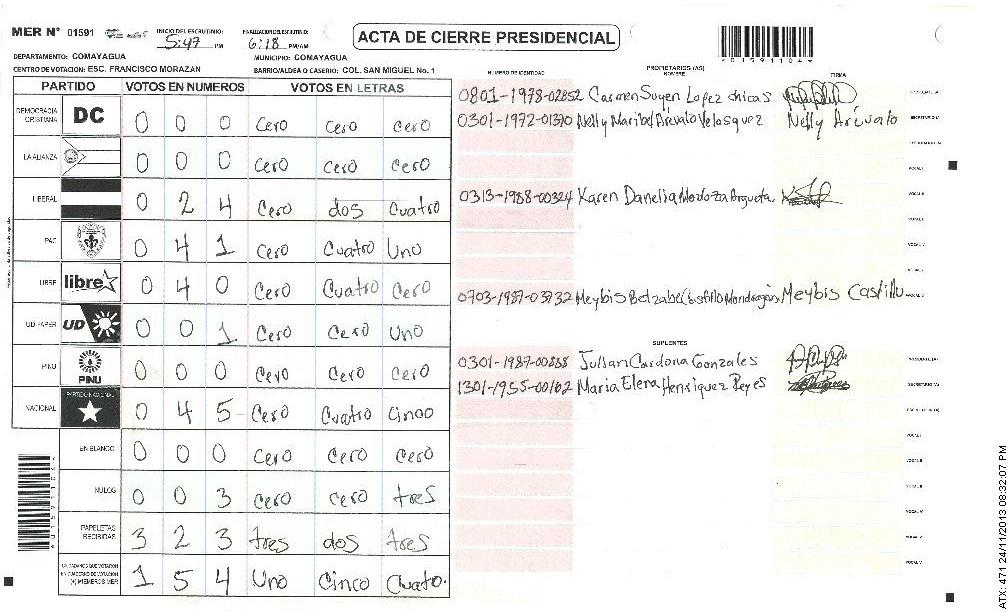 MER Nº 01591 INICIO DEL ESCRUTINIO: 5:47 PM FINALIZACION DEL ESCRUTINIO: 6:18 PM/AM
ACTA DE CIERRE PRESIDENCIAL
01591104
DEPARTAMENTO: COMAYAGUA MUNICIPIO: COMAYAGUA
CENTRO DE VOTACION: ESC. FRANCISCO MORAZAN BARRIO/ALDEA O CASERIO: COL. SAN MIGUEL No. 1
PARTIDO VOTOS EN NUMEROS VOTOS EN LETRAS
DEMOCRACIA CRISTIANA DC 0 0 0 Cero Cero cero
LA ALIANZA 0 0 0 Cero Cero Cero
LIBERAL 0 2 4 Cero dos Cuatro
PAC 0 4 1 Cero Cuatro Uno
LIBRE libre 0 4 0 Cero Cuatro Cero
UD-FAPER UD 0 0 1 Cero Cero Uno
PINU PINU 0 0 0 Cero Cero Cero
NACIONAL PARTIDO NACIONAL 0 4 5 Cero Cuatro Cinco
EN BLANCO 0 0 0 Cero Cero Cero
NULOS 0 0 3 Cero cero tres
PAPELETAS RECIBIDAS 3 2 3 tres dos tres
CIUDADANOS QUE VOTARON EN CUADERNO DE VOTACION (+) MIEMBROS MER 1 5 4 Uno Cinco Cuatro.
NUMERO DE IDENTIDAD PROPIETARIOS (AS) NOMBRE FIRMA
0801-1978-02852 Carmen Suyen Lopez chicas PRESIDENTE (A)
0301-1972-01370 Nelly Maribel Arevalo Velasquez Nelly Arévalo SECRETARIO (A)
ESCRUTADOR (A)
VOCAL I
0313-1988-00324 Karen Danelia Mendoza Argueta VOCAL II
VOCAL III
VOCAL IV
0703-1987-03732 Meybis Betzabe Castillo Mondragon Meybis Castillo
SUPLENTES
0301-1987-00868 Julian Cardona Gonzales PRESIDENTE (A)
1301-1955-00102 Maria Elena Henriquez Reyes SECRETARIO (A)
ESCRUTADOR (A)
VOCAL I
VOCAL II
VOCAL III
VOCAL IV
VOCAL V
ATX: 471 24/11/2013 08:32:07 PM